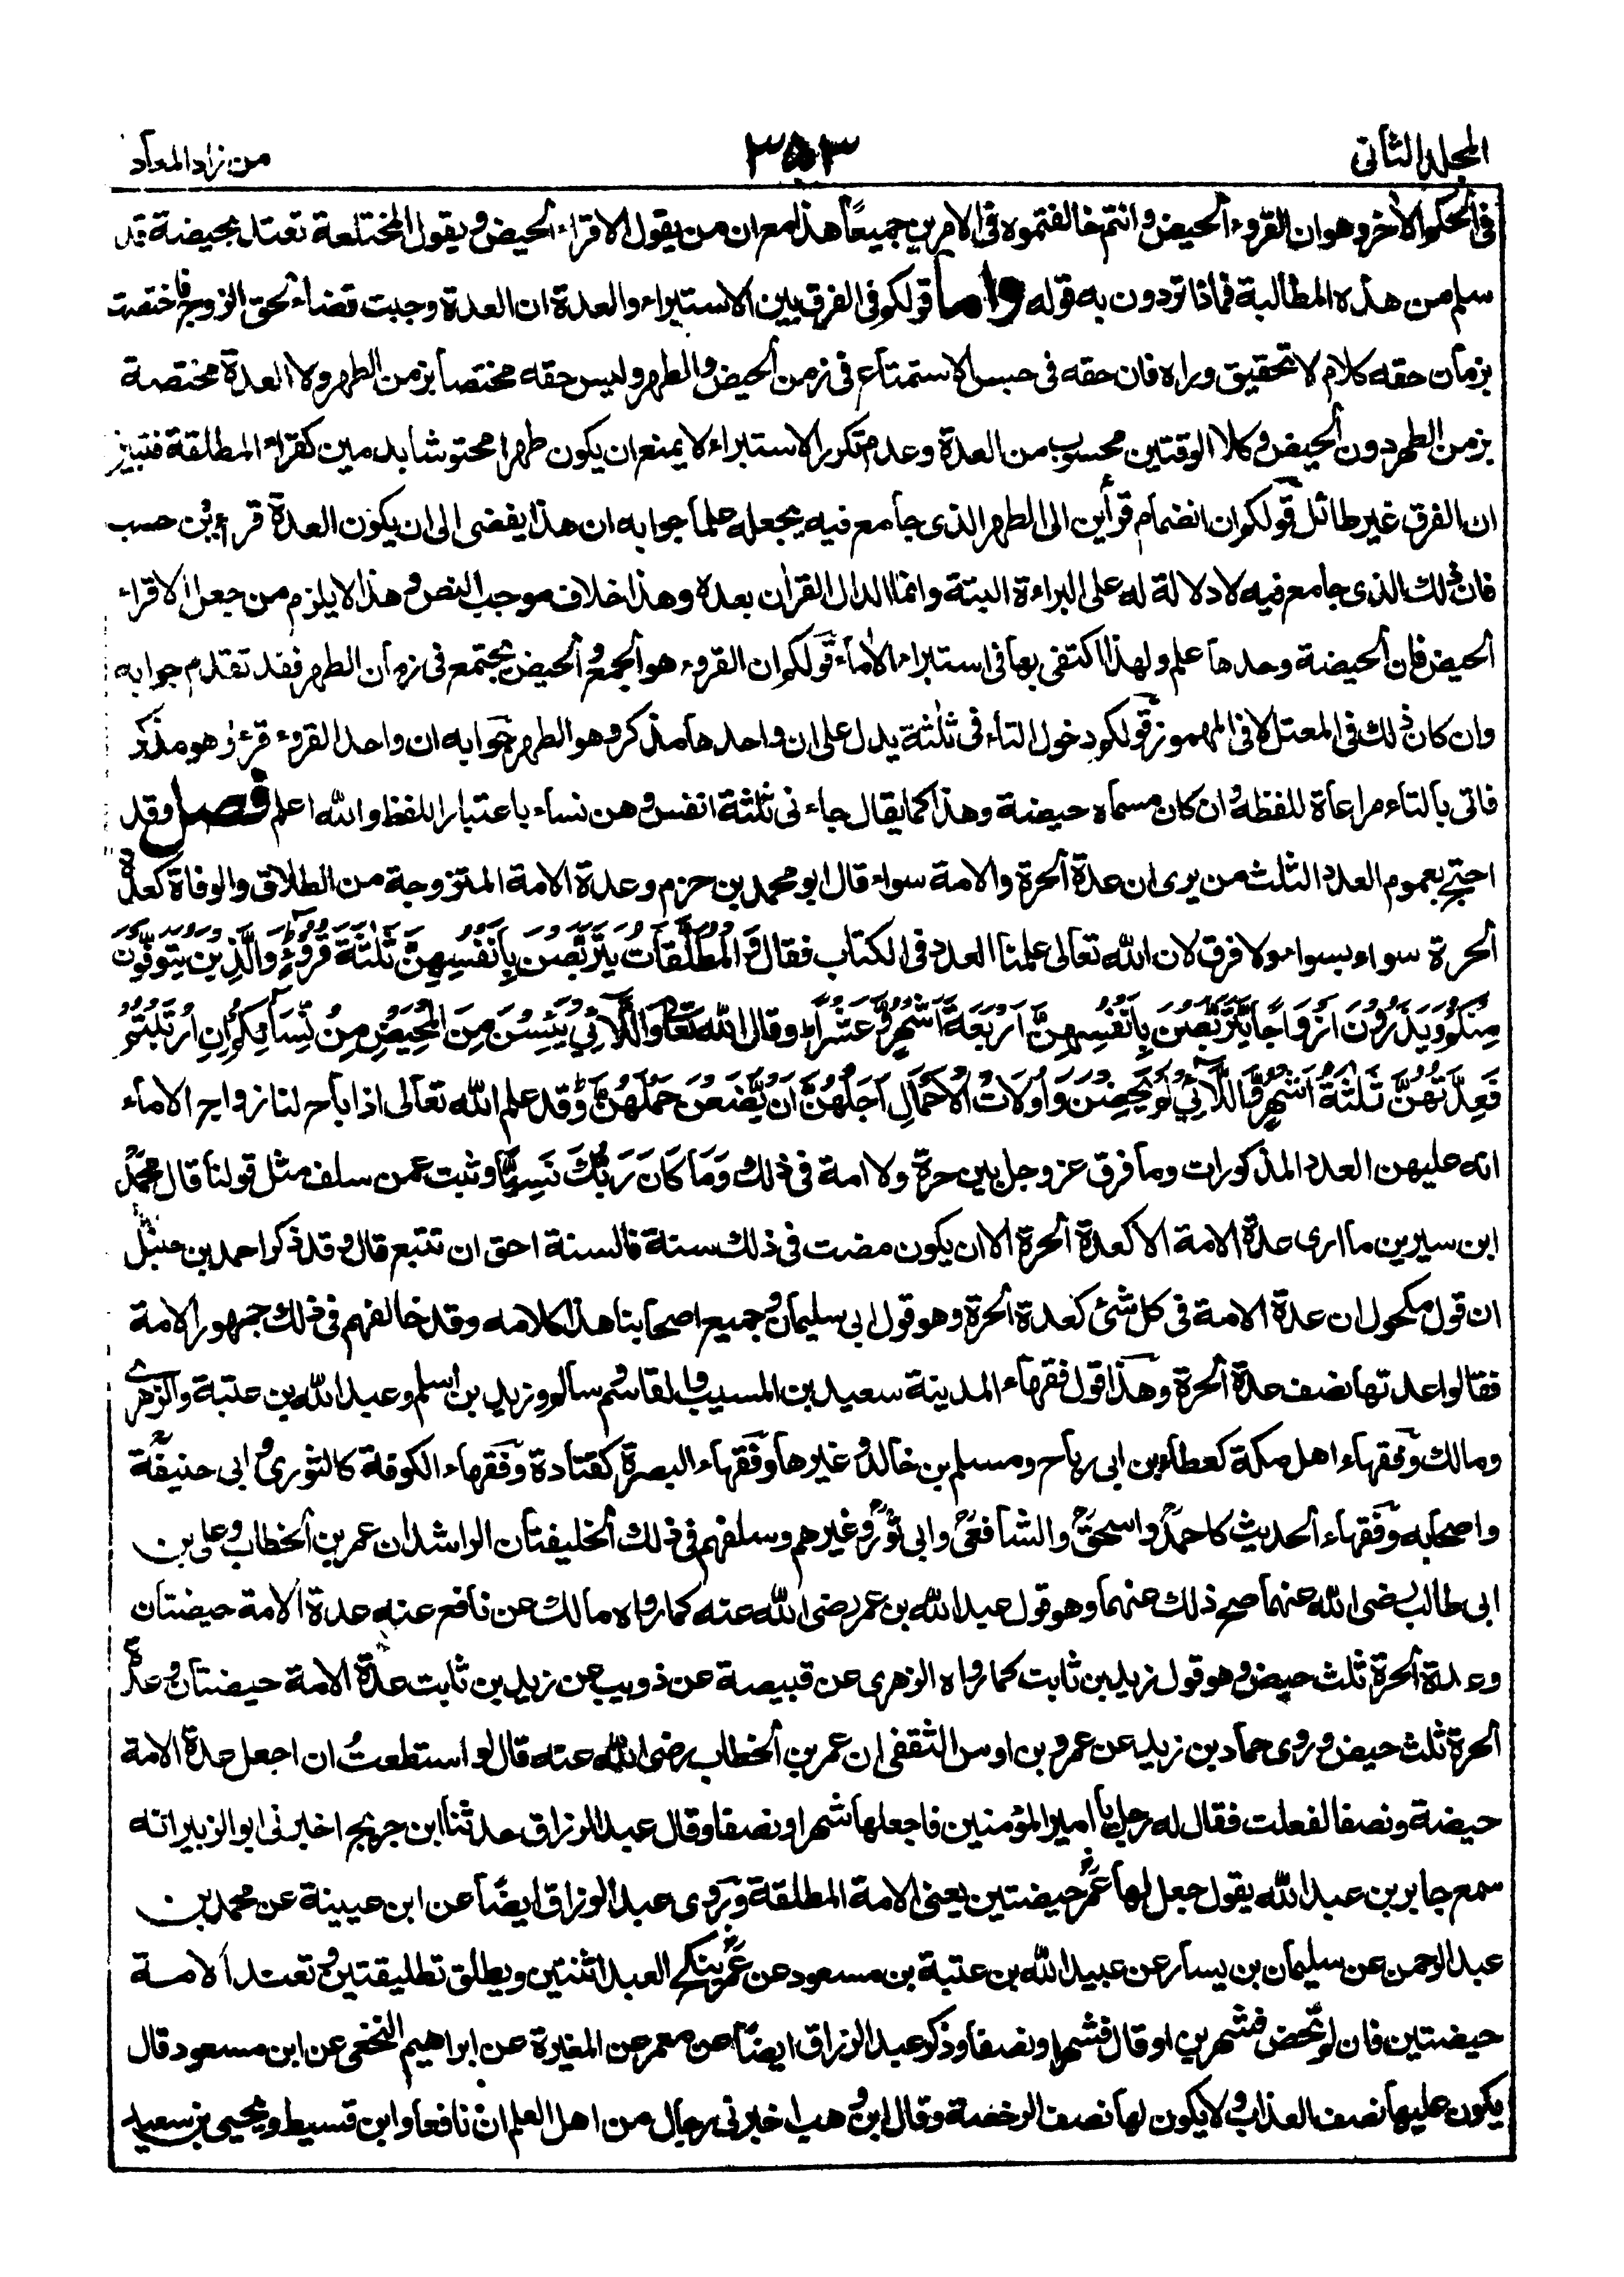 المجلد الثاني
٣٥٣
من زاد المعاد
في الحكم الأخر وهو ان القروء الحيض وانتم خالفتموه في الامرين جميعًا هذا مع ان من يقول الاقراء الحيض ويقول المختلعة تعتد بحيضة قد
سلم من هذه المطالبة فماذا تردون به قوله واما قولكم في الفرق بين الاستبراء والعدة ان العدة وجبت قضاء لحق الزوج فاختصت
بزمان حقه كلام لا تحقيق وراه فان حقه في حبس الاستمتاع في زمن الحيض والطهر وليس حقه مختصا بزمن الطهر ولا العدة مختصة
بزمن الطهر دون الحيض وكلا الوقتين محسوب من العدة وعدم تكرر الاستبراء لا يمنع ان يكون طهرا محتوشا بدمين كقراء المطلقة فتبين
ان الفرق غير طائل قولكم ان انضمام قرأين الى الطهر الذي جامع فيه يجعله علما جوابه ان هذا يفضي الى ان يكون العدة قرءين حسب
فان ذلك الذي جامع فيه لا دلالة له على البراءة البتة وانما الدال القران بعده وهذا خلاف موجب النص وهذا لا يلزم من جعل الاقراء
الحيض فان الحيضة وحدها علم ولهذا اكتفى بها في استبراء الاماء قولكم ان القروء هو الجمع والحيض يجتمع في زمان الطهر فقد تقدم جوابه
وان كان ذلك في المعتل لا في المهموز قولكم دخول التاء في ثلثة يدل على ان واحدها مذكر وهو الطهر جوابه ان واحد القروء قرء وهو مذكر
فاتى بالتاء مراعاة للفظه وان كان مسماه حيضة وهذا كما يقال جاء نى ثلثة انفس وهن نساء باعتبار اللفظ والله اعلم فصل وقد
احتج بعموم العدد الثلث من يرى ان عدة الحرة والامة سواء قال ابو محمد بن حزم وعدة الامة المتزوجة من الطلاق والوفاة كعدة
الحرة سواء بسواء ولا فرق لان الله تعالى علمنا العدد في الكتاب فقال وَالْمُطَلَّقَاتُ يَتَرَبَّصْنَ بِاَنْفُسِهِنَّ ثَلٰثَةَ قُرُوْءٍ وَالَّذِيْنَ يُتَوَفَّوْنَ
مِنْكُمْ وَيَذَرُوْنَ اَزْوَاجًا يَّتَرَبَّصْنَ بِاَنْفُسِهِنَّ اَرْبَعَةَ اَشْهُرٍ وَّعَشْرًا وقال الله تعالى وَاللَّآئِيْ يَئِسْنَ مِنَ الْمَحِيْضِ مِنْ نِّسَآئِكُمْ اِنِ ارْتَبْتُمْ
فَعِدَّتُهُنَّ ثَلٰثَةُ اَشْهُرٍ وَّاللَّآئِيْ لَمْ يَحِضْنَ وَاُولَاتُ الْاَحْمَالِ اَجَلُهُنَّ اَنْ يَّضَعْنَ حَمْلَهُنَّ وقد علم الله تعالى اذ اباح لنا زواج الاماء
انه عليهن العدد المذكورات وما فرق عز وجل بين حرة ولا امة في ذلك وَمَا كَانَ رَبُّكَ نَسِيًّا وثبت عمن سلف مثل قولنا قال محمد
ابن سيرين ما ارى عدة الامة الا كعدة الحرة الا ان يكون مضت في ذلك سنة فالسنة احق ان تتبع قال وقد ذكر احمد بن حنبل
ان قول مكحول ان عدة الامة في كل شئ كعدة الحرة وهو قول ابي سليمان وجميع اصحابنا هذا كلامه وقد خالفهم في ذلك جمهور الامة
فقالوا عدتها نصف عدة الحرة وهذا قول فقهاء المدينة سعيد بن المسيب والقاسم وسالم وزيد بن اسلم وعبد الله بن عتبة والزهري
ومالك وفقهاء اهل مكة كعطاء بن ابي رباح ومسلم بن خالد وغيرهما وفقهاء البصرة كقتادة وفقهاء الكوفة كالثوري وابي حنيفة
واصحابه وفقهاء الحديث كاحمد واسحق والشافعي وابي ثور وغيرهم وسلفهم في ذلك الخليفتان الراشدان عمر بن الخطاب وعلي بن
ابي طالب رضى الله عنهما صح ذلك عنهما وهو قول عبد الله بن عمر رضى الله عنه كما رواه مالك عن نافع عنه عدة الامة حيضتان
وعدة الحرة ثلث حيض وهو قول زيد بن ثابت كما رواه الزهري عن قبيصة عن ذويب عن زيد بن ثابت عدة الامة حيضتان وعدة
الحرة ثلث حيض وروى حماد بن زيد عن عمرو بن اوس الثقفي ان عمر بن الخطاب رضى الله عنه قال لو استطعتُ ان اجعل عدة الامة
حيضة ونصفا لفعلت فقال له رجل يا امير المؤمنين فاجعلها شهرا ونصفا وقال عبد الرزاق حدثنا ابن جريج اخبرني ابو الزبير انه
سمع جابر بن عبد الله يقول جعل لها عمر حيضتين يعنى الامة المطلقة وروى عبد الرزاق ايضًا عن ابن عيينة عن محمد بن
عبد الرحمن عن سليمان بن يسار عن عبيد الله بن عتبة بن مسعود عن عمر ينكح العبد اثنتين ويطلق تطليقتين وتعتد الامة
حيضتين فان لم تحض فشهرين او قال فشهرا ونصفا وذكر عبد الرزاق ايضًا عن معمر عن المغيرة عن ابراهيم النخعي عن ابن مسعود قال
يكون عليها نصف العذاب ولا يكون لها نصف الرخصة وقال ابن وهب اخبرني رجال من اهل العلم ان نافعا وابن قسيط ويحيى بن سعيد